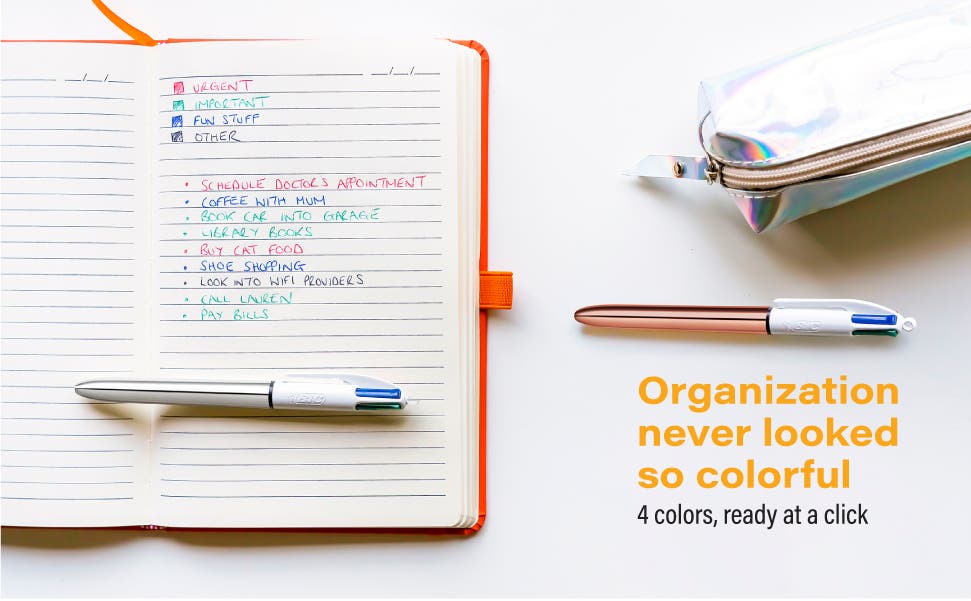 __/__/__
__/__/__
URGENT
IMPORTANT
FUN STUFF
OTHER
• SCHEDULE DOCTORS APPOINTMENT
• COFFEE WITH MUM
• BOOK CAR INTO GARAGE
• LIBRARY BOOKS
• BUY CAT FOOD
• SHOE SHOPPING
• LOOK INTO WIFI PROVIDERS
• CALL LAUREN
• PAY BILLS
BIC
BIC
Organization
never looked
so colorful
4 colors, ready at a click